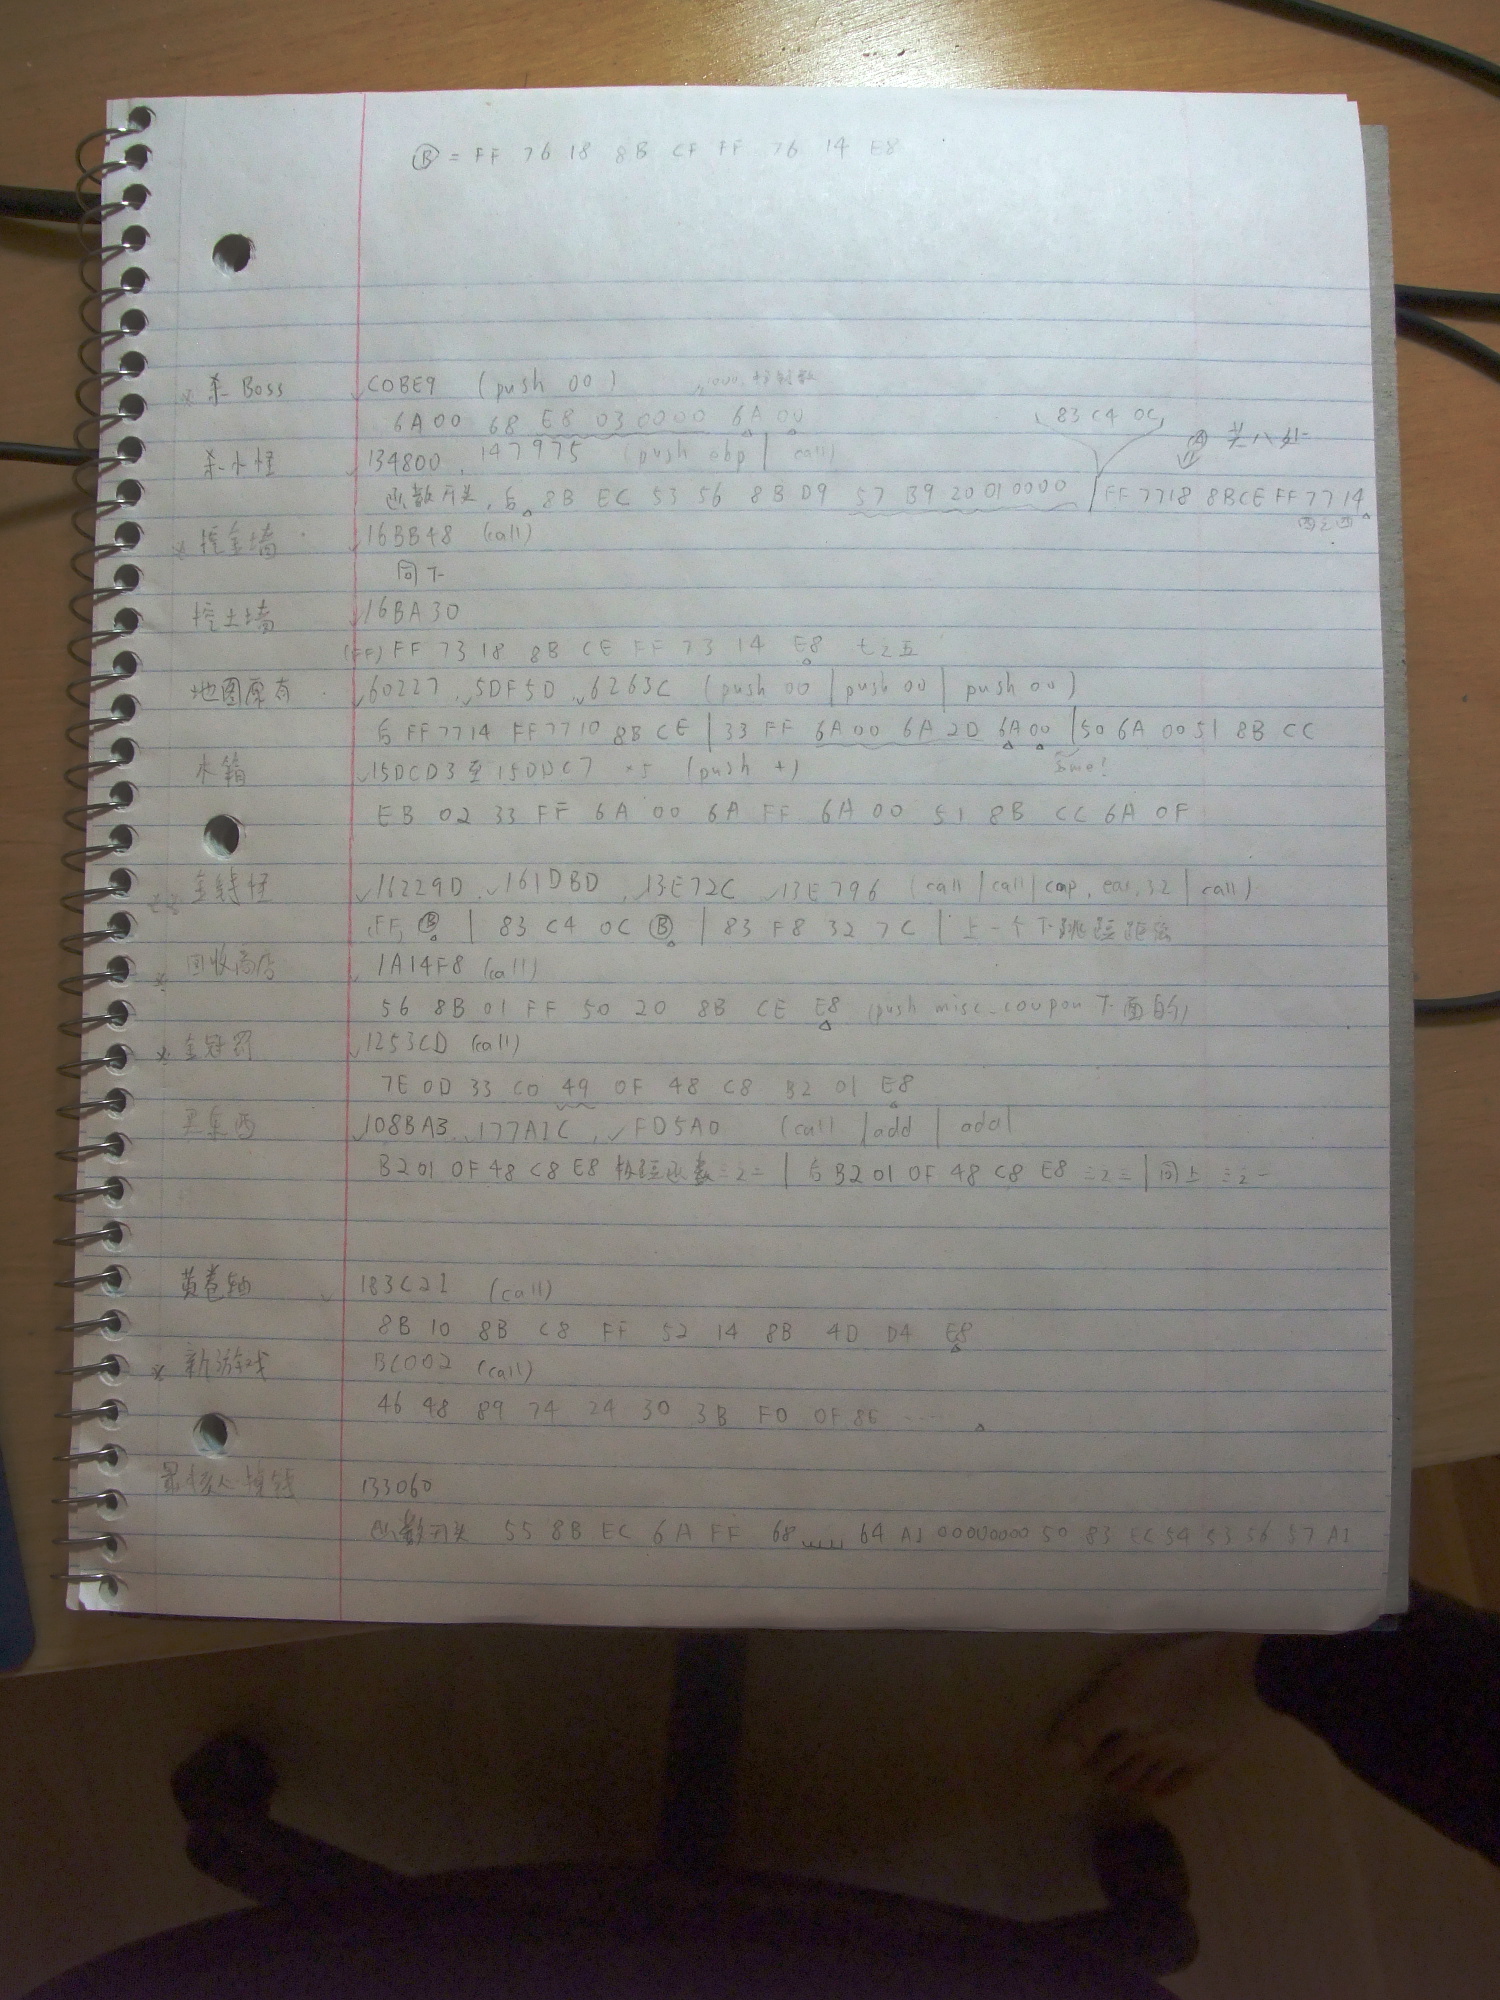 Ⓑ = FF 76 18 8B CF FF 76 14 E8
杀Boss C0BE9 (push 00)
6A 00 68 E8 03 0000 6A 00
83 C4 0C
杀小怪 134800, 147975 (push ebp | call)
共八处
函数开头, 后 8B EC 53 56 8B D9 57 B9 20 01 0000 | FF 77 18 8B CE FF 77 14
挖金墙 16BB48 (call)
同下
挖土墙 16BA30
(FF) FF 73 18 8B CE FF 73 14 E8 七之五
地图原有 60227, 5DF5D, 6263C (push 00 | push 00 | push 00)
后 FF 77 14 FF 77 10 8B CE | 33 FF 6A 00 6A 2D 6A 00 | 50 6A 00 51 8B CC
木箱 15DCD3 至 15DDC7 ×5 (push +)
EB 02 33 FF 6A 00 6A FF 6A 00 51 8B CC 6A 0F
金钱怪 16229D, 161DBD, 13E72C, 13E796 (call | call | cmp, eax, 32 | call)
FF, Ⓑ | 83 C4 0C Ⓑ | 83 F8 32 7C | 上一个下跳
回收商店 1A14F8 (call)
56 8B 01 FF 50 20 8B CE E8 (push misc_coupon 下面的)
金冠 1253CD (call)
7E 0D 33 C0 49 0F 48 C8 B2 01 E8
买东西 108BA3, 177A1C, FD5A0 (call | add | add)
B2 01 0F 48 C8 E8 函数 三之二 | 后 B2 01 0F 48 C8 E8 三之三 | 同上 三之一
黄卷轴 183C21 (call)
8B 10 8B C8 FF 52 14 8B 4D D4 E8
新游戏 BC002 (call)
46 48 89 74 24 30 3B F0 0F 8E ……
133060
函数开头 55 8B EC 6A FF 68 64 A1 00000000 50 83 EC 54 53 56 57 A1